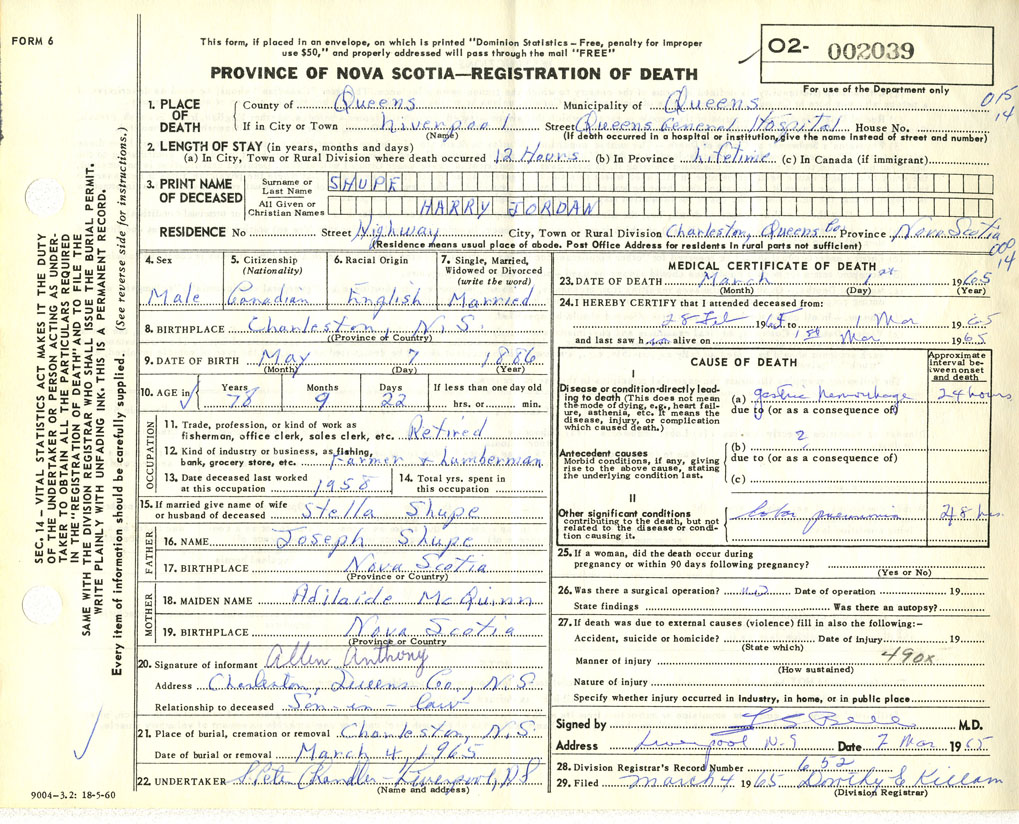 FORM 6
This form, if placed in an envelope, on which is printed "Dominion Statistics – Free, penalty for improper
use $50," and properly addressed will pass through the mail "FREE"
PROVINCE OF NOVA SCOTIA—REGISTRATION OF DEATH
02- 002039
For use of the Department only
015
14
1. PLACE OF DEATH
County of Queens Municipality of Queens
If in City or Town Liverpool Street Queens General Hospital House No.
(Name) (If death occurred in a hospital or institution, give the name instead of street and number)
2. LENGTH OF STAY (in years, months and days)
(a) In City, Town or Rural Division where death occurred 12 Hours (b) In Province Lifetime (c) In Canada (if immigrant)
3. PRINT NAME OF DECEASED
Surname or Last Name SHUPE
All Given or Christian Names HARRY JORDAN
RESIDENCE No Street Highway City, Town or Rural Division Charleston, Queens Co. Province Nova Scotia
(Residence means usual place of abode. Post Office Address for residents in rural parts not sufficient)
000
14
4. Sex
Male
5. Citizenship (Nationality)
Canadian
6. Racial Origin
English
7. Single, Married, Widowed or Divorced (write the word)
Married
8. BIRTHPLACE Charleston, N.S.
(Province or Country)
9. DATE OF BIRTH May 7 1886
(Month) (Day) (Year)
10. AGE in
Years 78 Months 9 Days 22 If less than one day old
hrs. or min.
OCCUPATION
11. Trade, profession, or kind of work as
fisherman, office clerk, sales clerk, etc. Retired
12. Kind of industry or business, as fishing,
bank, grocery store, etc. Farmer & Lumberman
13. Date deceased last worked
at this occupation 1958
14. Total yrs. spent in
this occupation
15. If married give name of wife
or husband of deceased Stella Shupe
FATHER
16. NAME Joseph Shupe
17. BIRTHPLACE Nova Scotia
(Province or Country)
MOTHER
18. MAIDEN NAME Adilaide McQuinn
19. BIRTHPLACE Nova Scotia
(Province or Country)
20. Signature of informant Allen Anthony
Address Charleston, Queens Co., N.S.
Relationship to deceased Son-in-law
21. Place of burial, cremation or removal Charleston, N.S.
Date of burial or removal March 4, 1965
22. UNDERTAKER Chandler Liverpool, N.S.
(Name and address)
MEDICAL CERTIFICATE OF DEATH
23. DATE OF DEATH March 1st 1965
(Month) (Day) (Year)
24. I HEREBY CERTIFY that I attended deceased from:
28 Feb 1965 to 1 Mar 1965
and last saw him alive on 1st Mar 1965
CAUSE OF DEATH
Approximate interval between onset and death
I
Disease or condition directly lead-
ing to death (This does not mean
the mode of dying, e.g., heart fail-
ure, asthenia, etc. It means the
disease, injury, or complication
which caused death.)
(a) gastric hemorrhage 24 hours
due to (or as a consequence of)
Antecedent causes
Morbid conditions, if any, giving
rise to the above cause, stating
the underlying condition last.
(b) ?
due to (or as a consequence of)
(c)
II
Other significant conditions
contributing to the death, but not
related to the disease or condi-
tion causing it.
lobar pneumonia 48 hrs.
25. If a woman, did the death occur during
pregnancy or within 90 days following pregnancy?
(Yes or No)
26. Was there a surgical operation? no Date of operation 19
State findings Was there an autopsy?
27. If death was due to external causes (violence) fill in also the following:-
Accident, suicide or homicide? Date of injury 19
(State which)
490x
Manner of injury
(How sustained)
Nature of injury
Specify whether injury occurred in industry, in home, or in public place
Signed by M.D.
Address Liverpool N.S Date 2 Mar 1965
28. Division Registrar's Record Number 652
29. Filed March 4 1965 Dorothy E Killam
(Division Registrar)
9004-3.2: 18-5-60
SEC. 14 – VITAL STATISTICS ACT MAKES IT THE DUTY
OF THE UNDERTAKER OR PERSON ACTING AS UNDER-
TAKER TO OBTAIN ALL THE PARTICULARS REQUIRED
IN THE "REGISTRATION OF DEATH" AND TO FILE THE
SAME WITH THE DIVISION REGISTRAR WHO SHALL ISSUE THE BURIAL PERMIT.
WRITE PLAINLY WITH UNFADING INK. THIS IS A PERMANENT RECORD.
Every item of information should be carefully supplied. (See reverse side for instructions.)